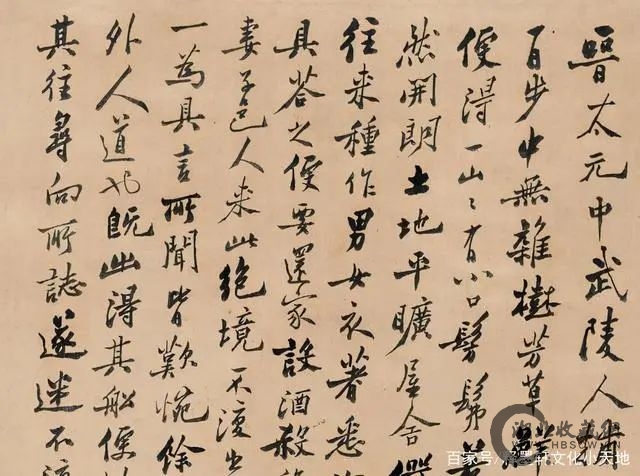 晉太元中武陵人
百步中無雜樹芳草
便得一山〻有小口髣髴若
然開朗土地平曠屋舍儼
往來種作男女衣著悉
具荅之便要還家設酒殺
妻子邑人來此絶境不復出
一為具言所聞皆歎惋餘
外人道也既出得其船便
其往尋向所誌遂迷不
百家号/轩文化小天地